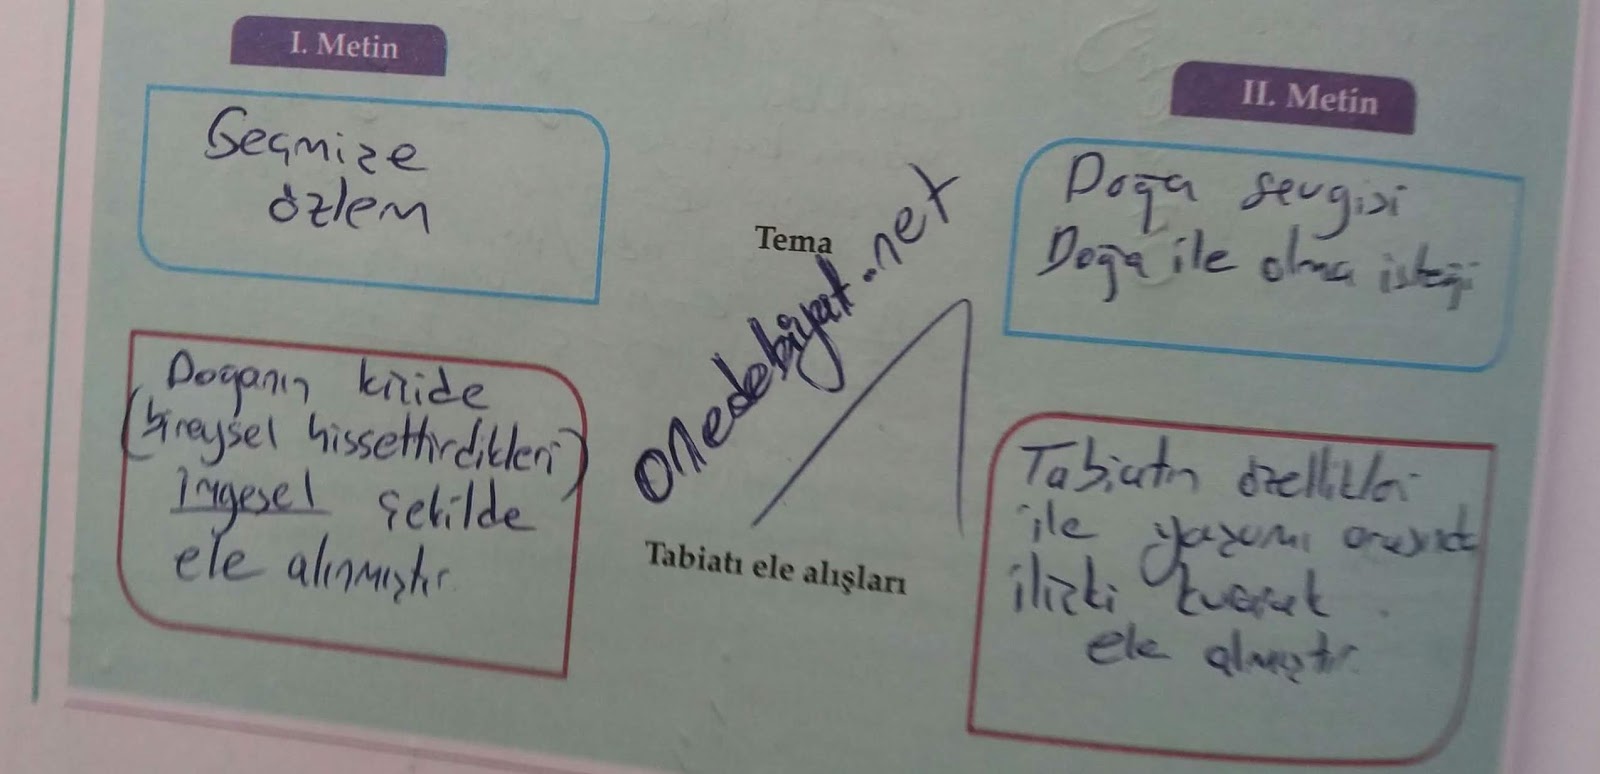 I. Metin
II. Metin
Geçmişe
özlem
Tema
Doğa sevgisi
Doğa ile olma isteği
onedebiyat.net
Doğanın kişide
(bireysel hissettirdikleri)
İmgesel şekilde
ele alınmıştır.
Tabiatı ele alışları
Tabiatın özellikleri
ile yaşamı arasında
ilişki kurarak
ele almıştır.